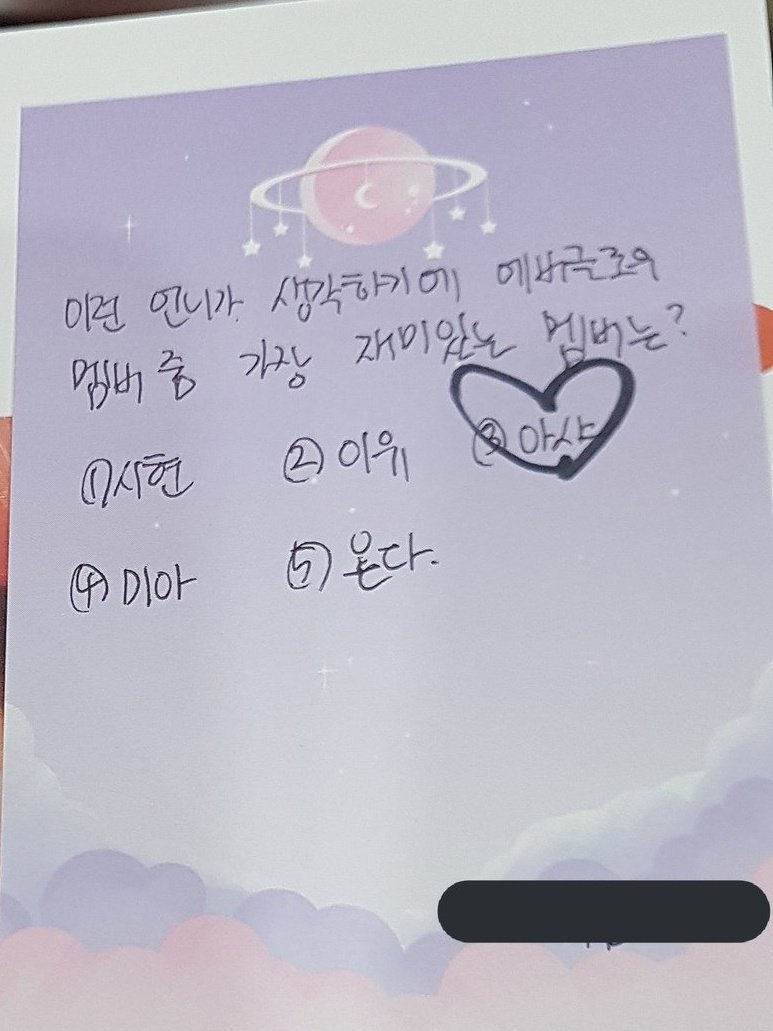 이런 언니가 생각하기에 에버글로우
멤버 중 가장 재미있는 멤버는?
①시현 ②이유 ③아샤
④미아 ⑤온다.